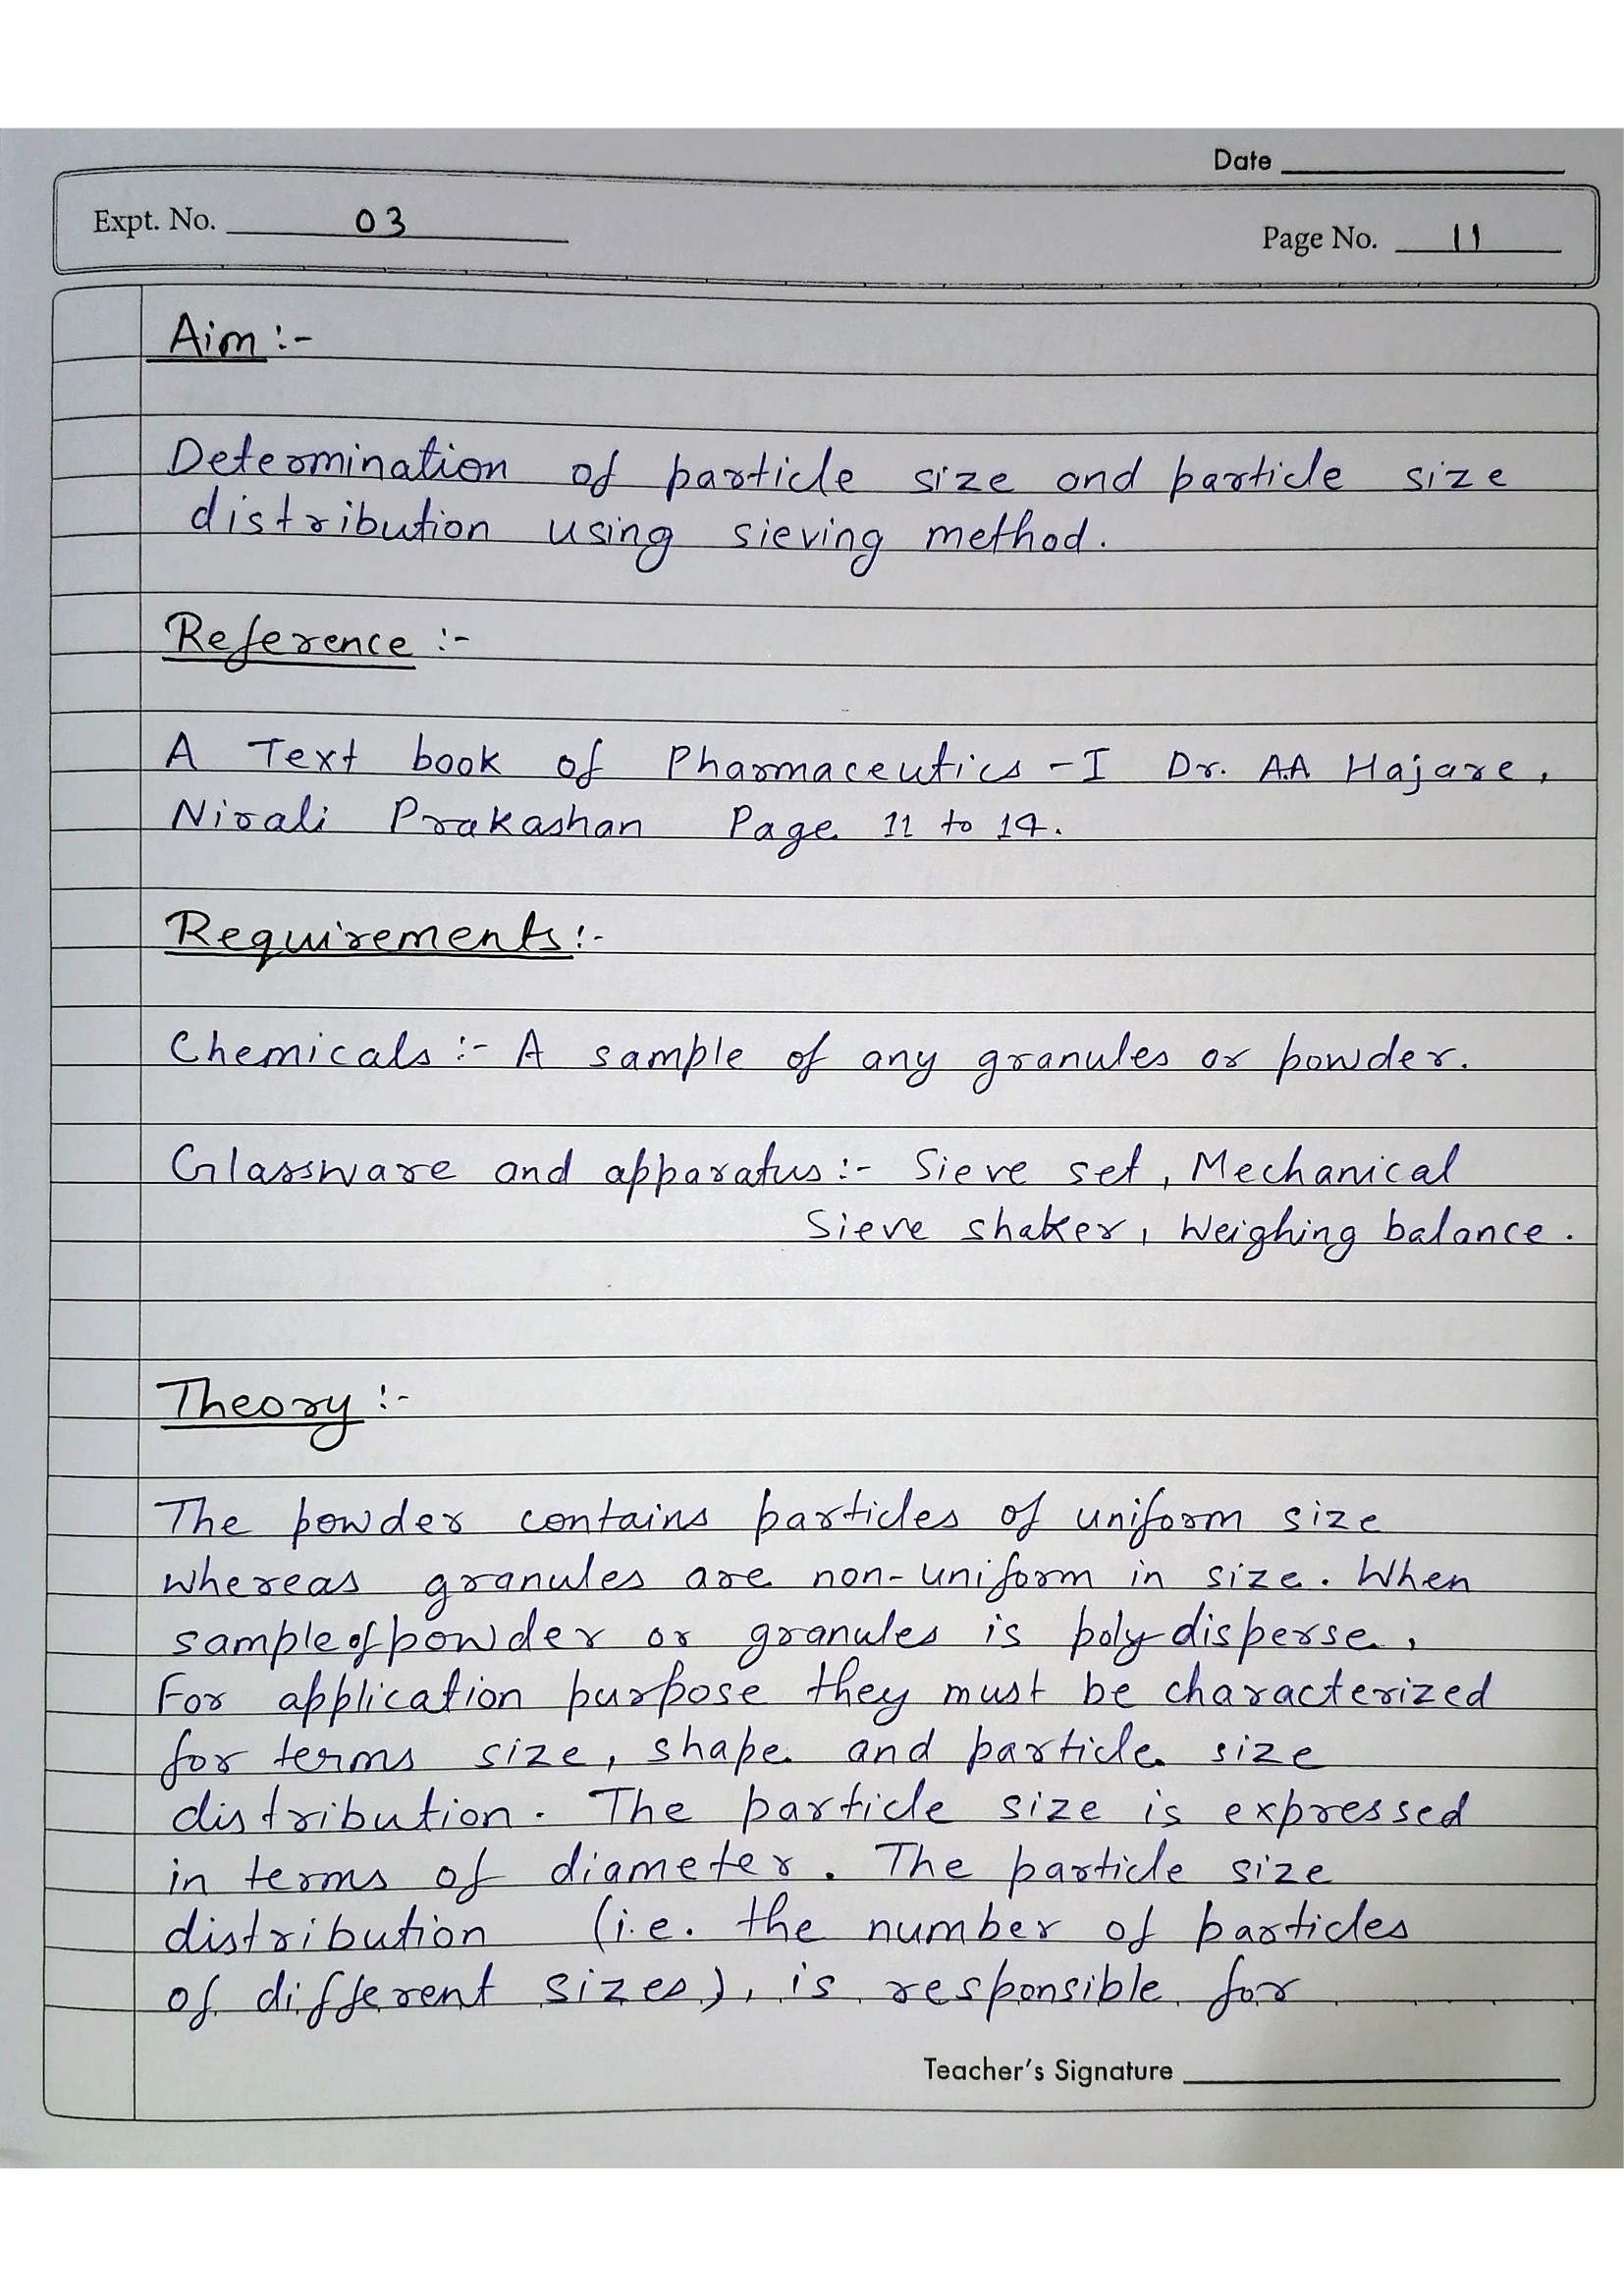 Date
Expt. No. 03
Page No. 11
Aim :-
Determination of particle size and particle size
distribution using sieving method.
Reference :-
A Text book of Pharmaceutics - I Dr. A.A Hajare,
Nirali Prakashan Page 11 to 14.
Requirements :-
Chemicals :- A sample of any granules or powder.
Glassware and apparatus :- Sieve set, Mechanical
Sieve shaker, Weighing balance.
Theory :-
The powder contains particles of uniform size
whereas granules are non-uniform in size. When
sample of powder or granules is poly-disperse,
For application purpose they must be characterized
for terms size, shape and particle size
distribution. The particle size is expressed
in terms of diameter. The particle size
distribution (i.e. the number of particles
of different sizes), is responsible for
Teacher's Signature